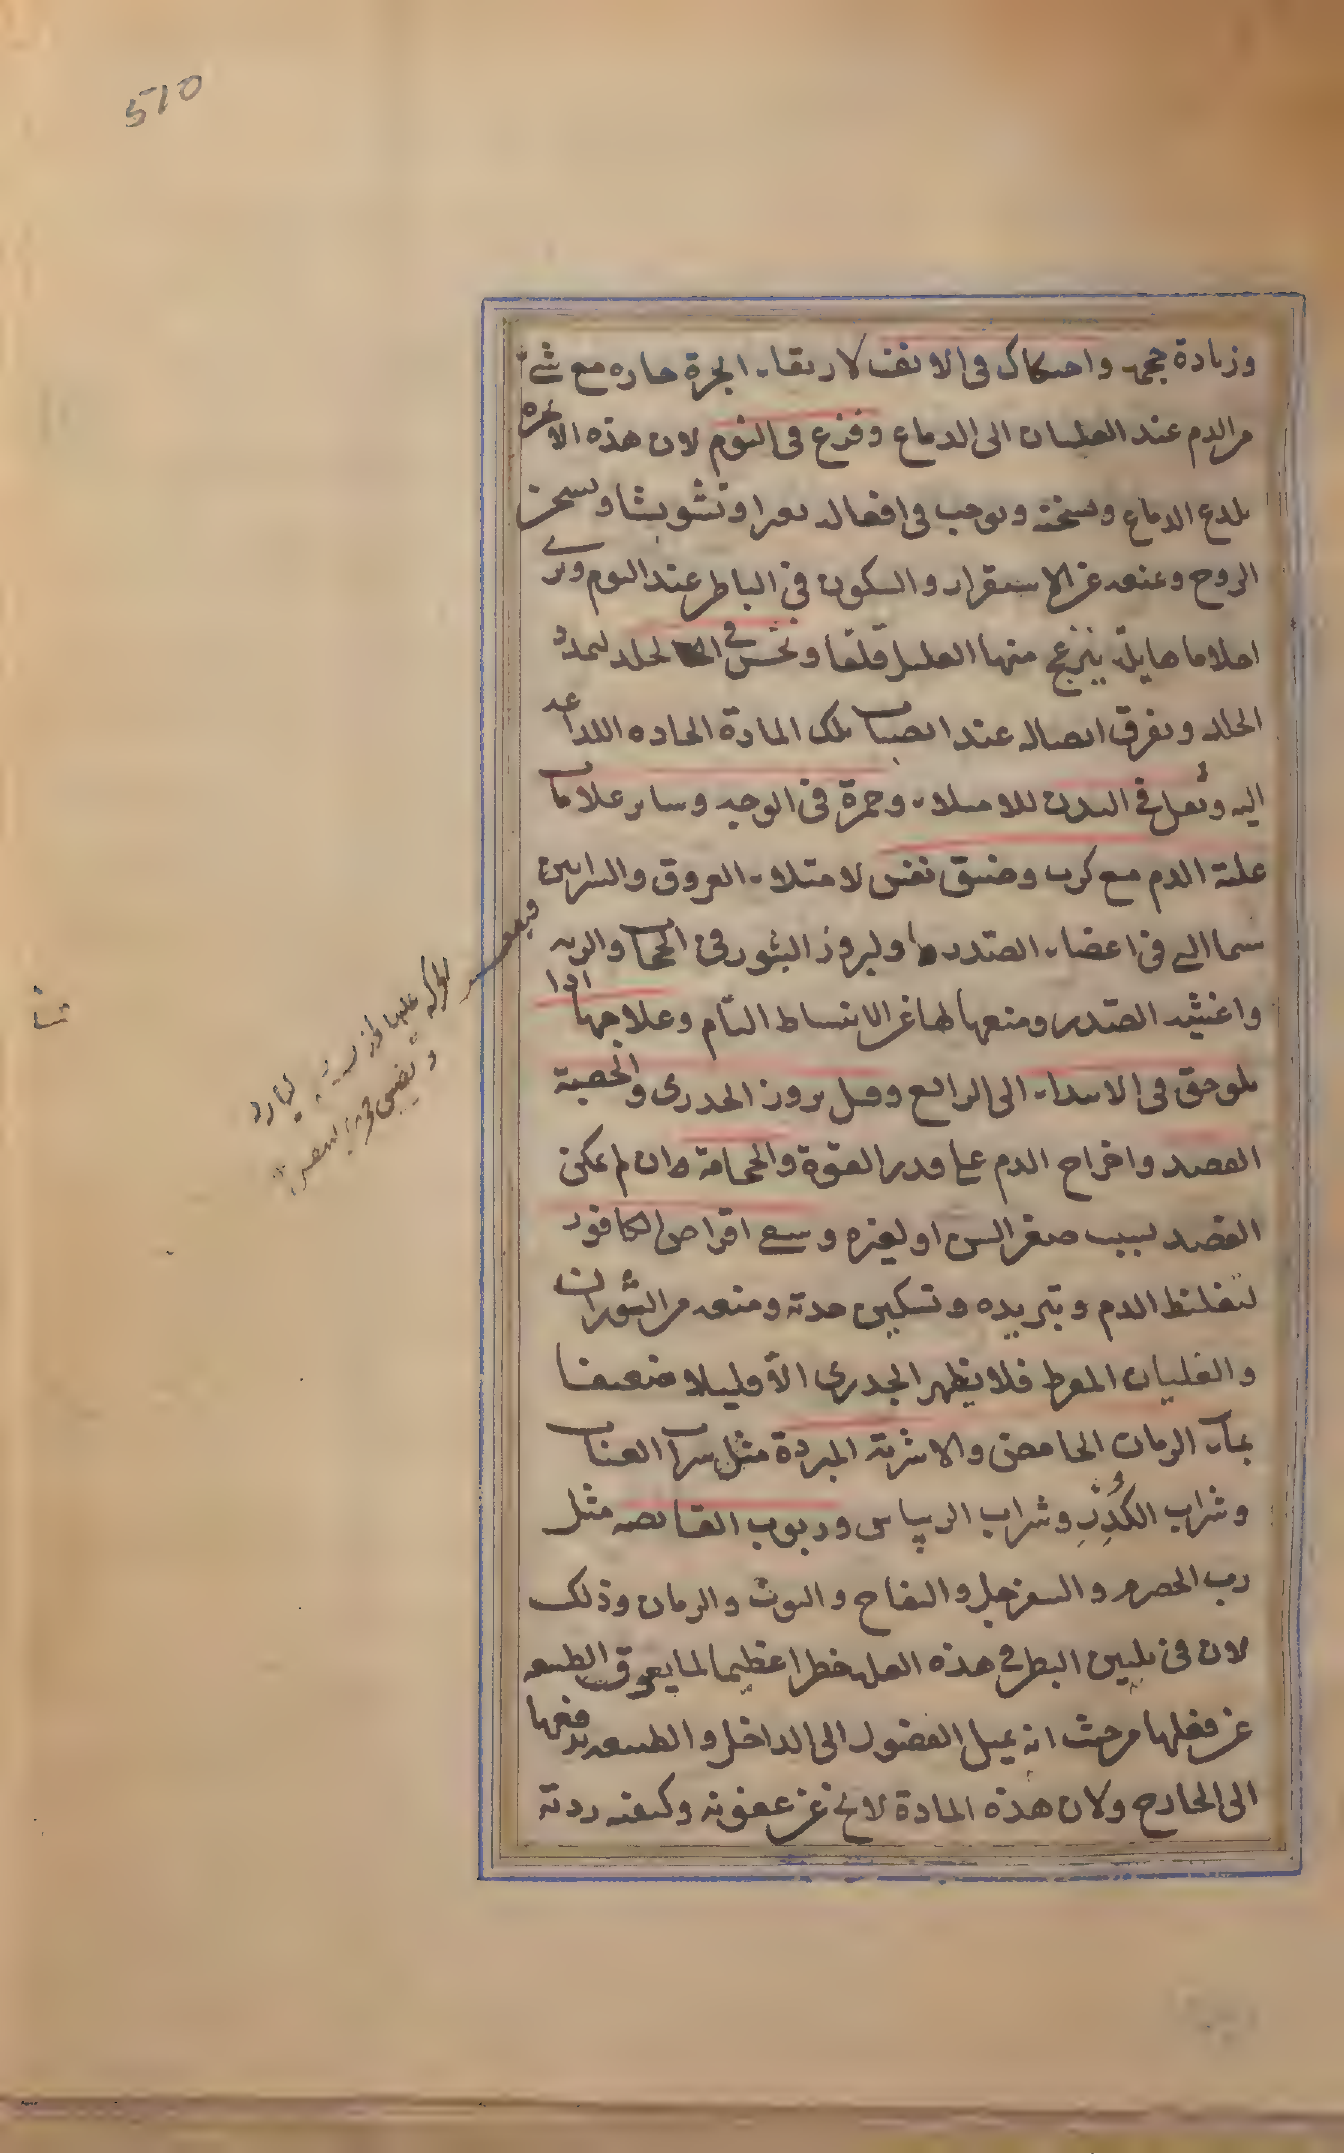 510
وزيادة حجمه واحتكاك فى الانف لارتقاء ابخرة حاره مع شئ
من الدم عند الغليان الى الدماغ وفزع فى النوم لان هذه الابخره
يلدغ الدماغ ويسخنه ويوجب فى افعاله تغيرا وتشويشا ويسخن
الروح ويمنعه عن الاستقرار والسكون فى الباطن عند النوم ويرى
احلاما هايلة ينزعج منها العليل قلقا ونخس فى الجلد لتمدد
الجلد وتفرق اتصاله عند انصباب تلك المادة الحاده اللداعه
اليه وثقل فى البدن للامتلاء وحمرة فى الوجه وساير علامات
غلبة الدم مع كرب وضيق نفس لامتلاء العروق والشرايين
سيما التى فى اعضاء الصدر ولبروز البثور فى الحجاب والريه
واغشية الصدر ومنعها لها عن الانبساط التام وعلاجها اذا
يلوحق فى الابتداء الى الرابع وقبل بروز الجدرى والحصبة
الفصد واخراج الدم على قدر القوة والحجامة ان لم يمكن
الفصد لسبب صغر السن او لغيره وسقى اقراص الكافور
لتغليظ الدم وتبريده وتسكين حدته ومنعه من الثوران
والغليان المفرط فلا يظهر الجدرى الا قليلا ضعيفا
بماء الرمان الحامض والاشربة المبردة مثل شراب العناب
وشراب الكدر وشراب الريباس وربوب القابضه مثل
رب الحصرم والسفرجل والتفاح والتوث والرمان وذلك
لان فى تليين البطن فى هذه العله خطرا عظيما لما يعوق الطبيعه
عن فعلها من حيث انه يميل الفضول الى الداخل والطبيعه تدفعها
الى الخارج ولان هذه المادة لا تخ عن عفونه وكيفيه ردية